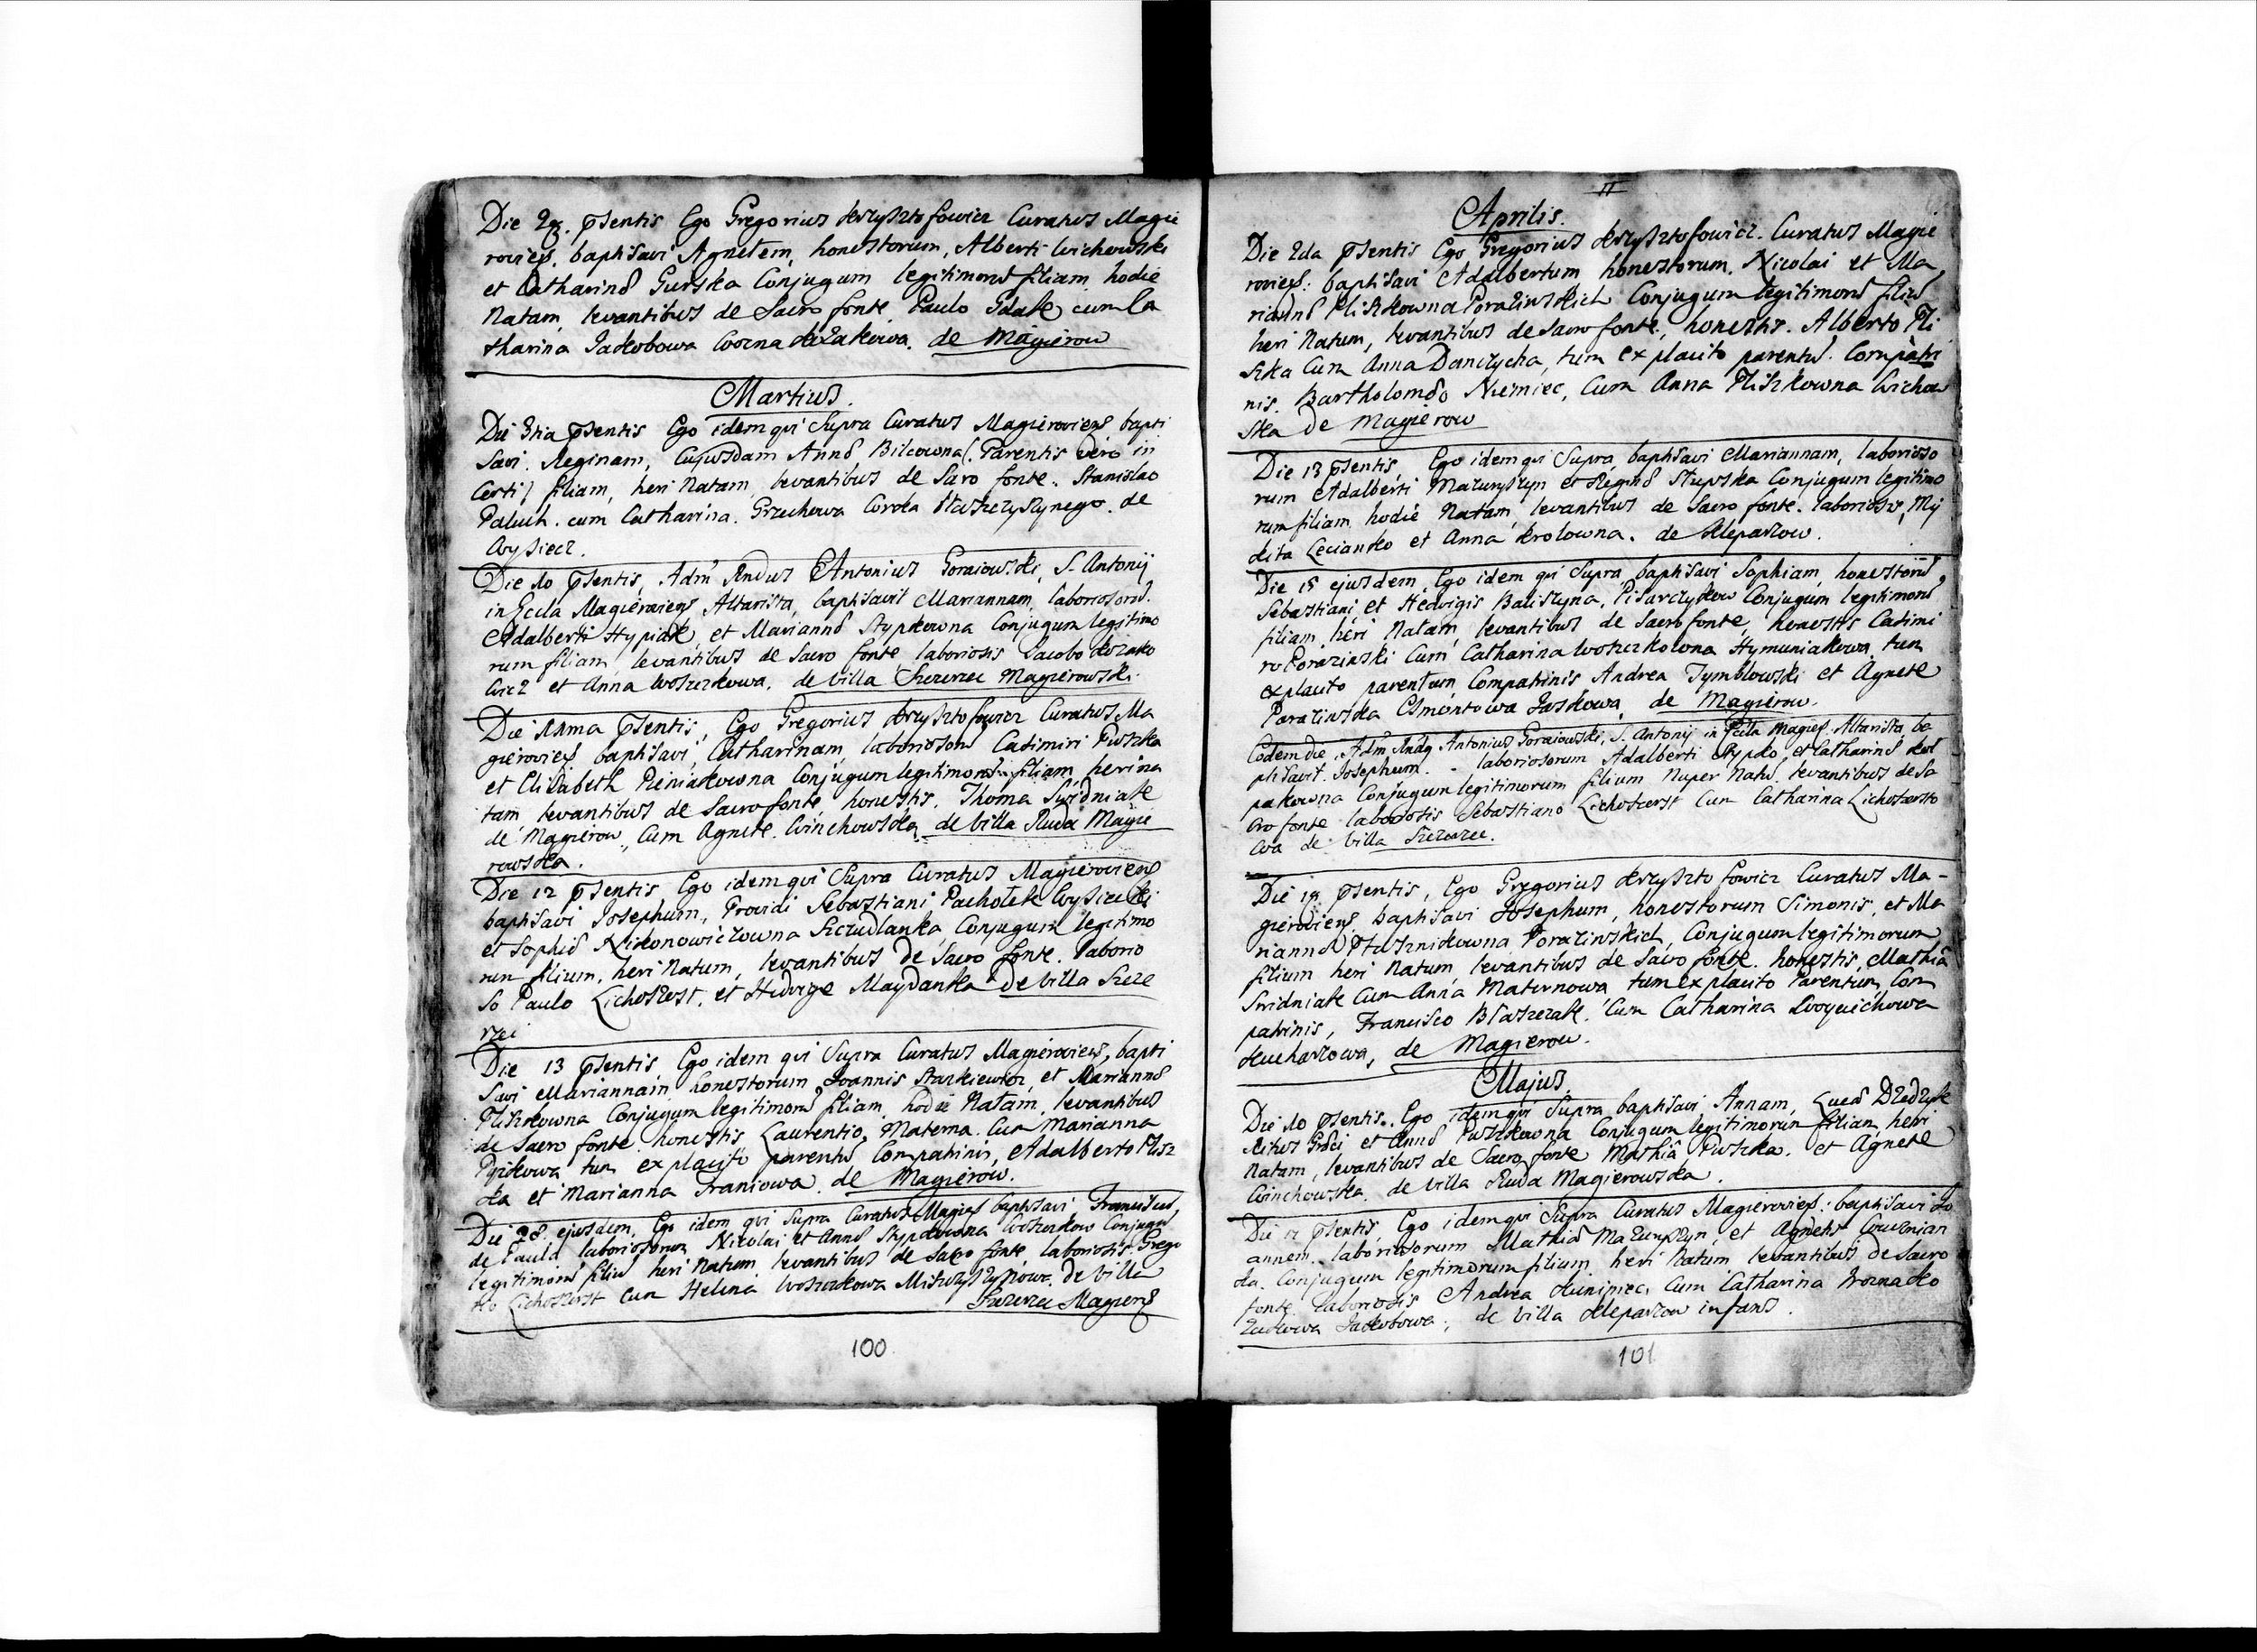 Die 28. pſentis Ego Gregorius Krzysztofowicz Curatus Magie
rovieñ. baptisavi Agnetem, honestorum, Alberti Wichowski
et Catharinæ Gurska Conjugum legitimorum filiam hodie
Natam levantibus de Sacro fonte Paulo Gdak cum Ca
tharina Jakobowa Kozakowa. de Magierow
Martius.
Die 3tia pſentis Ego idem qui Supra Curatus Magierovieñ bapti
savi Reginam, Cujusdam Annæ Bilcowna (Parentis vero in
certi) filiam, heri Natam levantibus de Sacro fonte. Stanislao
Paluch. cum Catharina. Grzechowa Corka Staszczyszynego. de
Wysiecz.
Die 10 pſentis, Adm Rndus Antonius Goraiowski, S. Antonij
in Eccla Magierovieñ Altarista, baptisavit Mariannam, laboriosorũ.
Adalberti Stypiak, et Mariannæ Stypkowna Conjugum legitimo
rum filiam levantibus de Sacro fonte laboriosis Jacobo Kozako
wicz et Anna Woszczkowa. de Villa Szczerzec Magierowski.
Die 11ma pſentis, Ego Gregorius Krzysztofowicz Curatus Ma
gierovieñ baptisavi, Catharinam, laboriosorũ Casimiri Puszka
et Elisabeth Pieniakowna Conjugum legitimorũ filiam heri na
tam levantibus de Sacro fonte honestis. Thoma Swidniak
de Magierow, Cum Agnete. Winchowska de Villa Ruda Magie
rowska.
Die 12 pſentis Ego idem qui Supra Curatus Magierovieñ
baptisavi Josephum, Providi Sebastiani Pacholek Wysiecki
et Sophiæ Nikonowiczowna Szczudlanka Conjugum legitimo
rum filium, heri Natum, levantibus de Sacro fonte. laborio
so Paulo Lichoszerst, et Hedvige Maydanka de Villa Szcze
rzei
Die 13 pſentis Ego idem qui Supra Curatus Magierovieñ, bapti
savi Mariannam, honestorum Joannis Starkiewicz et Mariannæ
Pliszkowna Conjugum legitimorũ filiam hodie Natam, levantibus
de Sacro fonte honestis Laurentio Materna. Cum Marianna
tum ex placito parentũ Compatrinis, Adalberto Plisz
ka et Marianna Franiowa. de Magierow.
Die 28. ejusdem, Ego idem qui Supra Curatus Magieñ baptisavi, Franciscum,
de Paula, laboriosorum Nicolai et Annæ Stypkowna Woszczkow Conjugũ
legitimorũ filiũ heri Natum levantibus de Sacro fonte, laboriosis Grego
rio Lichoszerst cum Helena Woszczkowa de Villa
Szczerzec Magierovieñ
100
Aprilis.
Die 2da pſentis Ego Gregorius Krzysztofowicz. Curatus Magie
rovieñ: baptisavi Adalbertum honestorum, Nicolai et Ma
riannæ Pliszkowna Porazinskich Conjugum legitimorũ filiũ
heri Natum, levantibus de Sacro fonte, honestis. Alberto Pli
szka Cum Anna Danczycha, tum ex placito parentũ. Compatri
nis. Bartholomæo Niemiec, Cum Anna Pliszkowna Wichow
ska de Magierow
Die 13 pſentis, Ego idem qui Supra baptisavi Mariannam, laborioso
rum Adalberti Mazuryszyn et Reginæ Stupska Conjugum legitimo
rum filiam hodie Natam levantibus de Sacro fonte. laborioso, My
kita Leciawko et Anna Krolowna. de Kleparow.
Die 18 ejusdem Ego idem qui Supra baptisavi Sophiam, honestorũ,
Sebastiani et Hedvigis Baliszyna, Pisarczykow Conjugum legitimorũ
filiam heri Natam levantibus de Sacro fonte, honestis Casimi
ro Porazinski Cum Catharina Woszczkowna Hymuniakowa, tum
ex placito parentum Compatrinis Andrea Tymblowski et Agnete
Porazinska Jaskowa de Magierow.
Eodem die, Adm Rndq Antonius Goraiowski, S. Antonij in Eccla Magieñ. Altarista, ba
ptisavit Josephum. - laboriosorum Adalberti Stypko, et Catharinæ Kol
pakowna Conjugum legitimorum filium Nuper Natũ. levantibus de Sa
cro fonte laboriosis Sebastiano Lichoszerst Cum Catharina Lichoszersto
wa de Villa Szczerzec.
Die 19 pſentis, Ego Gregorius Krzysztofowicz Curatus Ma-
gierovieñ. baptisavi Josephum, honestorum Simonis, et Ma
riannæ Ptusznikowna Porazinskich, Conjugum legitimorum
filium heri Natum levantibus de Sacro fonte. honestis, Mathia
Swidniak Cum Anna Maternowa tum ex placito Parentum, Com
patrinis, Francisco Blaszczak. Cum Catharina Woyciechowa
Kucharzowa, de Magierow.
Majus.
Die 10 pſentis. Ego idem qui Supra baptisavi Annam, Lucæ Dzedzyk
Ritus Græci et Annæ Puszkowna Conjugum legitimorum filiam, heri
Natam, levantibus de Sacro fonte Mathia Puszka. et Agnete
Winchowska. de Villa Ruda Magierowska.
Die 12 pſentis, Ego idem qui Supra Curatus Magierovieñ: baptisavi Jo
annem. laboriosorum Mathiæ Mazuryszyn, et Agnetis
ka. Conjugum legitimorum filium, heri Natum levantibus de Sacro
fonte. laboriosis Andrea Cum Catharina
Jakobowa; de Villa Kleparow infans.
101